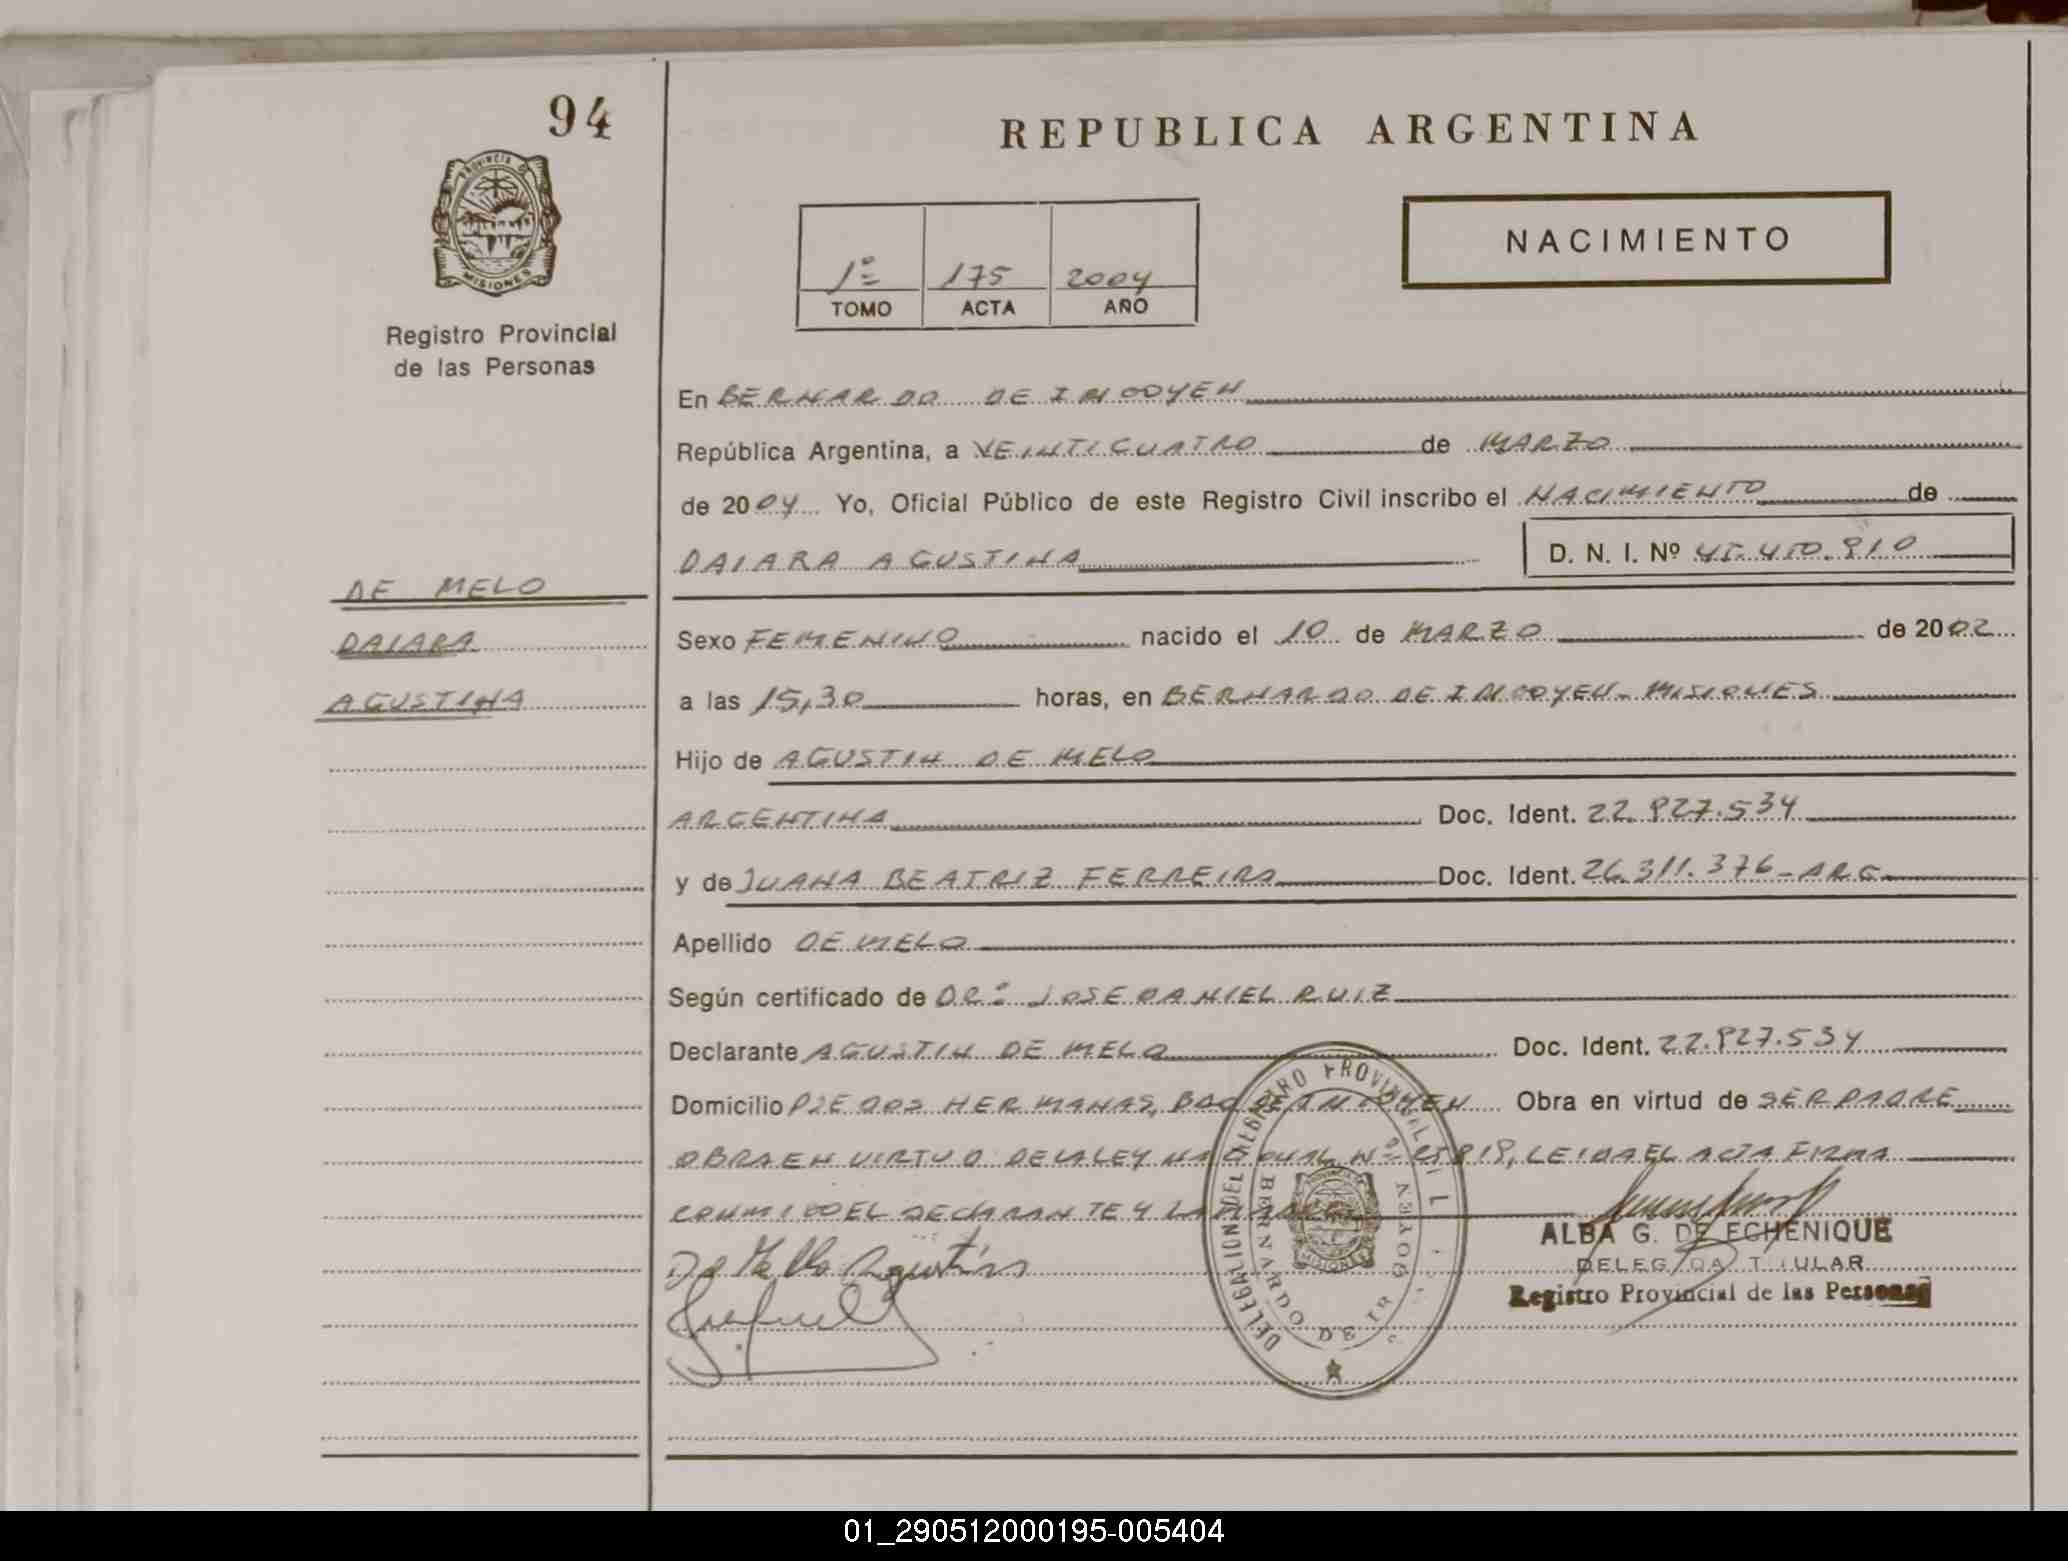 94
REPUBLICA ARGENTINA
PROVINCIA DE
MISIONES
Registro Provincial
de las Personas
1º 175 2004
TOMO ACTA AÑO
NACIMIENTO
En BERNARDO DE IRIGOYEN
República Argentina, a VEINTICUATRO de MARZO
de 2004 Yo, Oficial Público de este Registro Civil inscribo el NACIMIENTO de
DAIARA AGUSTINA D. N. I. Nº
DE MELO
DAIARA
AGUSTINA
Sexo FEMENINO nacido el 10 de MARZO de 2002
a las 15,30 horas, en BERNARDO DE IRIGOYEN - MISIONES
Hijo de AGUSTIN DE MELO
ARGENTINA Doc. Ident. 22.827.534
y de JUANA BEATRIZ FERREIRA Doc. Ident. 26.311.376 - ARG
Apellido DE MELO
Según certificado de DRº JOSE DANIEL RUIZ
Declarante AGUSTIN DE MELO Doc. Ident. 22.827.534
Domicilio PJE DOS HERMANAS, BDO DE IRIGOYEN Obra en virtud de SER PADRE
OBRA EN VIRTUD DE LA LEY NACIONAL Nº 25818, LEIDA EL ACTA FIRMA
CONMIGO EL DECLARANTE Y LA MADRE
De Mello Agustin
ALBA G. DE ECHENIQUE
DELEGADA TITULAR
Registro Provincial de las Personas
BERNARDO DE IRIGOYEN
MISIONES
01_290512000195-005404